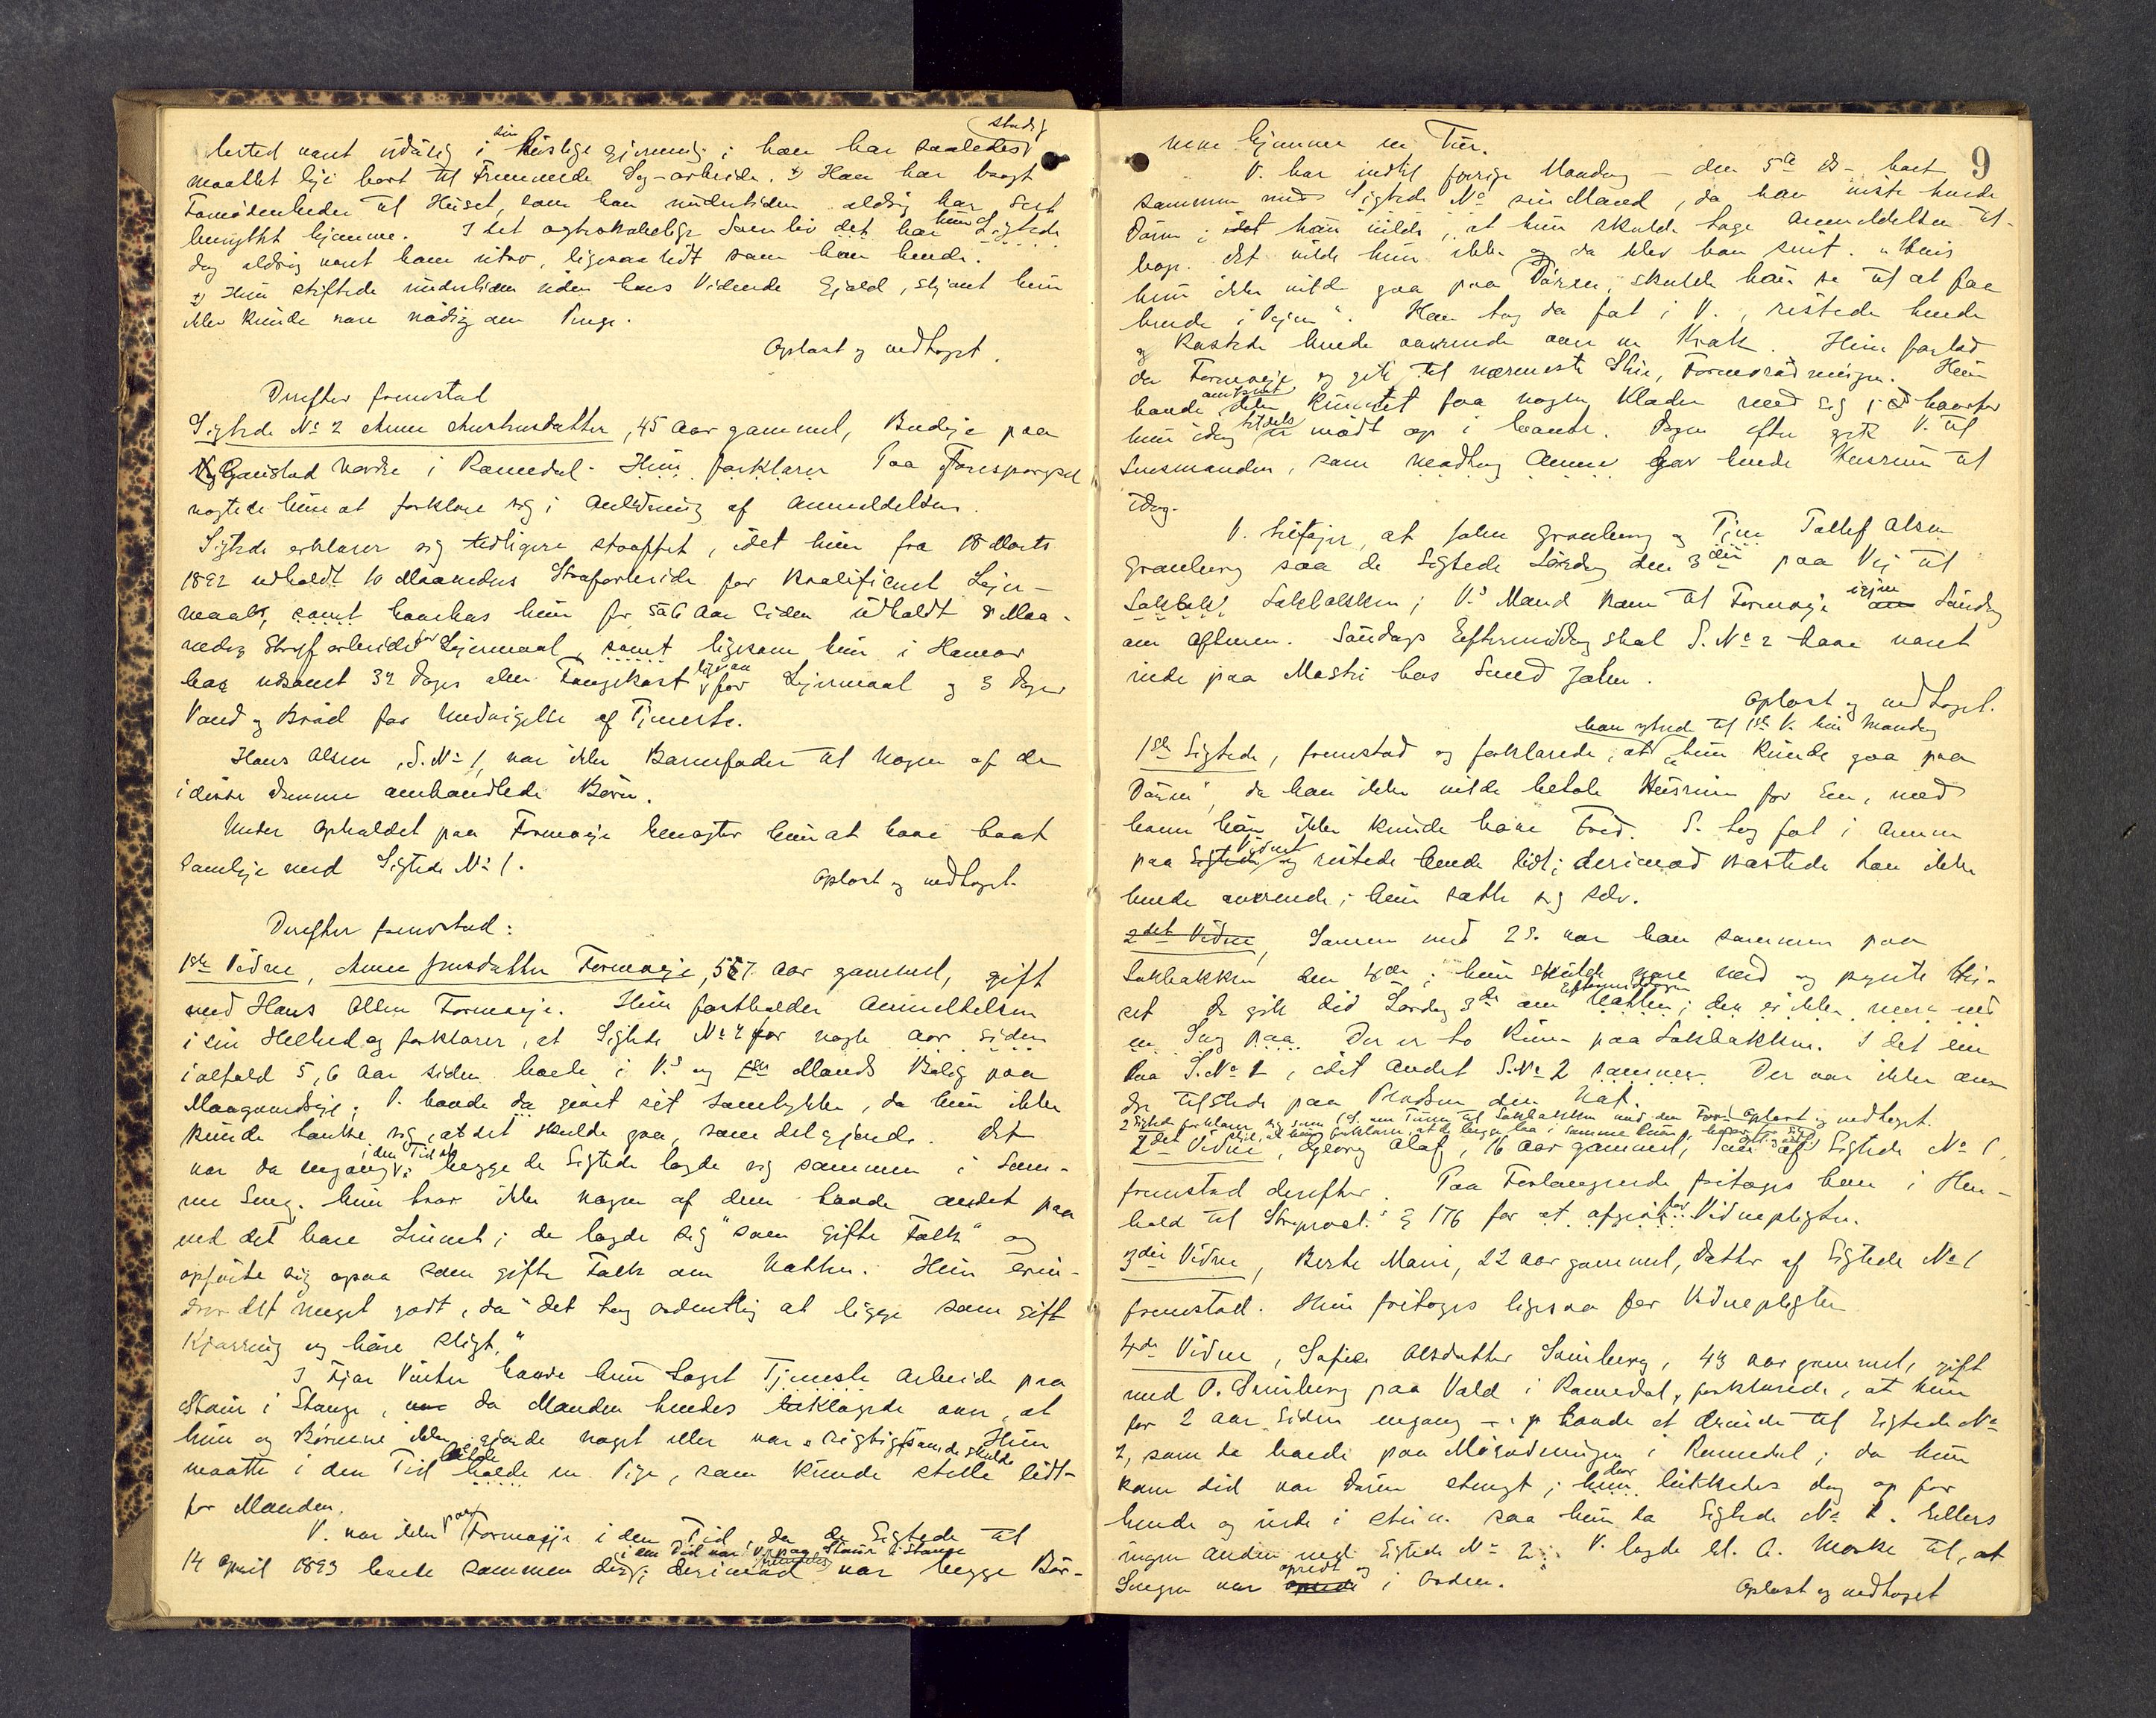 stadig
sin
lested vært udulig i huslige gjerning; han har saaledes
maattet leje bort til Fremmede Sy-arbeide. x) Han har bragt
Fornødenheder til Huset, som hun undertiden aldrig har
benyttet hjemme. I det ægteskabelige Samliv det har hun Sigtede
dog aldrig været ham utro, ligesaalidt som han hende.
x) Hun stiftede undertiden uden hans Vidende Gjæld, skjønt hun
ikke kunde være nødig om Penge.
Oplæst og vedtaget.
Derefter fremstod
Sigtede No 2 Anne , 45 Aar gammel, Budeje paa
Gaustad Nordre i Romedal. Hun forklarer Paa Forespørgsel
nægtede hun at forklare sig i Anledning af Anmeldelsen.
Sigtede erklærer sig tidligere straffet, idet hun fra 18 Marts
1892 udholdt 10 Maaneders Strafarbeide for kvalificeret Lejer-
maal, samt havdes hun for 5 à 6 Aar siden udholdt 8 Maa-
neders Strafarbeide for Lejermaal, samt ligesom hun i Hamar
har udsonet 32 Dages alm. Fangekost ligesaa for Lejermaal og 3 Dages
Vand og Brød for Undvigelse af Tjeneste.
Hans Olsen, S. No 1, var ikke Barnefader til nogen af de
i disse Domme omhandlede Børn.
Under Opholdet paa Formoeje benægter hun at have havt
Samleje med Sigtede No 1.
Oplæst og vedtaget.
Derefter fremstod:
1ste Vidne, Anne Jensdatter Formoeje, 57 Aar gammel, gift
med Hans Olsen Formoeje. Hun fastholder Anmeldelsen
i sin Helhed og forklarer, at Sigtede No 2 for nogle Aar siden
ialfald 5, 6 Aar siden boede i V.s og Mands Bolig paa
V. havde da givet sit Samtykke, da hun ikke
kunde tænke sig, at det skulde gaa, som det gjorde. Det
i den Tid at
var da engang begge de Sigtede lagde sig sammen i Sam-
me Seng. Hun tror ikke nogen af dem havde andet paa
end det bare Linnet; de lagde sig "som gifte Folk" og
opførte sig ogsaa som gifte Folk om Natten. Hun erin-
drer det meget godt, da "det tog ordentlig at ligge som gift
Kjærring og høre sligt."
I Fjor Vinter havde hun taget Tjeneste Arbeide paa
Staur i Stange, da Manden hendes beklagede over, at
hun og Børnene ikke gjorde noget eller var rigtig Hun
maatte i den Tid holde en Pige, som kunde stelle lidt
for Manden.
V. var ikke paa Formoeje i den Tid, da de Sigtede til
i den Tid var V. paa Staur i Stange
14 April 1893 boede sammen der; derimod var begge Bør-
9
nene hjemme en Tur.
V. har indtil forrige Mandag – den 5te ds – boet
sammen med Sigtede No 1 sin Mand, da han viste hende
Døren; idet han vilde, at hun skulde tage Anmeldelsen til-
bage. Det vilde hun ikke og da blev han sint. "Hvis
hun ikke vilde gaa paa Døren, skulde han se til at faa
hende i Vejen". Han tog da fat i V., ristede hende
og kastede hende overende over en Krak. Hun forlod
da Formoeje og gik til nærmeste Sted, Formorødningen. Hun
havde ikke kunnet faa nogen Klæder med sig; hvorfor
hun idag tildels er mødt op i laante. Dagen efter gik V. til
Lensmanden, som modtog Anne Gav hende Husrum til
idag.
V. tilføjer, at John Granberg og Tollef Olsen
Granberg saa de Sigtede Lørdag den 3die paa Vej til
Sollbakken; V.s Mand kom til Formoeje igjen Søndag
om Aftenen. Søndags Eftermiddag skal S. No 2 have været
inde paa Mostri hos Smed John.
Oplæst og vedtaget.
han ytrede til 1ste V. hin Mandag
1ste Sigtede, fremstod og forklarede, at "hun kunde gaa paa
Døren", da han ikke vilde betale Husrum for En, med
hvem han ikke kunde have Fred. S. tog fat i Armen
paa Vidnet og ristede hende lidt; derimod kastede han ikke
hende overende; hun satte sig selv.
2det Vidne, Sammen med 2 S. var han sammen paa
Solbakken den 4de; hun skulde være med og pynte Hu-
set. De gik did Lørdag 3die om Eftermiddagen; der er ikke mere end
en Seng paa. Der er to Rum paa Solbakken. I det ene
laa S. No 1, i det andet S. No 2 sammen. Der var ikke an-
dre tilstede paa Pladsen den Nat.
Oplæst og vedtaget.
2det Vidne, Georg Olaf, 16 Aar gammel, Søn af Sigtede No 1,
fremstod derefter. Paa Forlangende fritages han i Hen-
hold til Strprosl.s § 176 for at afgive Vidnepligten.
3die Vidne, Berte Marie, 22 Aar gammel, Datter af Sigtede No 1
fremstod. Hun fritages ligesaa for Vidnepligten
4de Vidne, Sofie Olsdatter Sundberg, 43 Aar gammel, gift
med O. Sundberg paa Vold i Romedal, forklarede, at hun
for 2 Aar siden engang havde et Ærinde til Sigtede No
2, som da boede paa Morødningen i Romedal; da hun
kom did var Døren stængt; der lukkedes dog op for
hende og inde i Stuen saa hun da Sigtede No 1. Ellers
ingen Anden end Sigtede No 2. V. lagde bl. A. Mærke til, at
Sengen var opredt og i Orden.
Oplæst og vedtaget